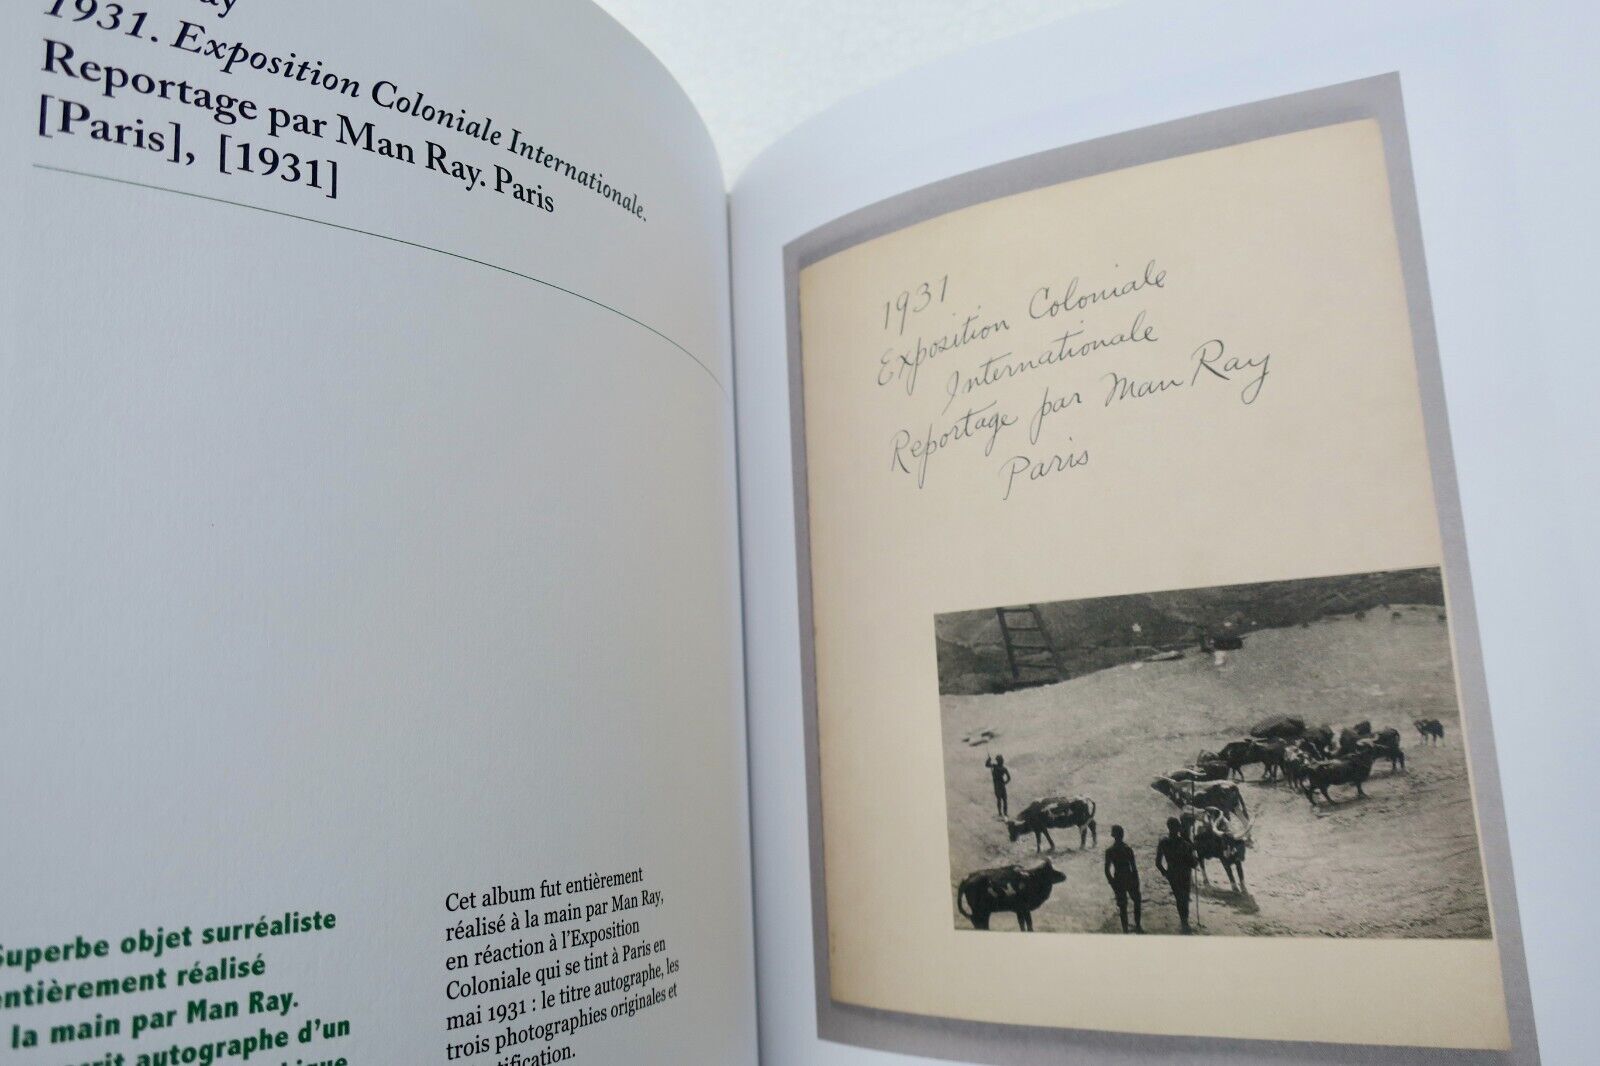 1931. Exposition Coloniale Internationale.
Reportage par Man Ray. Paris
[Paris], [1931]
Superbe objet surréaliste
entièrement réalisé
la main par Man Ray.
autographe d'un
Cet album fut entièrement
réalisé à la main par Man Ray,
en réaction à l'Exposition
Coloniale qui se tint à Paris en
mai 1931 : le titre autographe, les
trois photographies originales et
1931
Exposition Coloniale
Internationale
Reportage par Man Ray
Paris